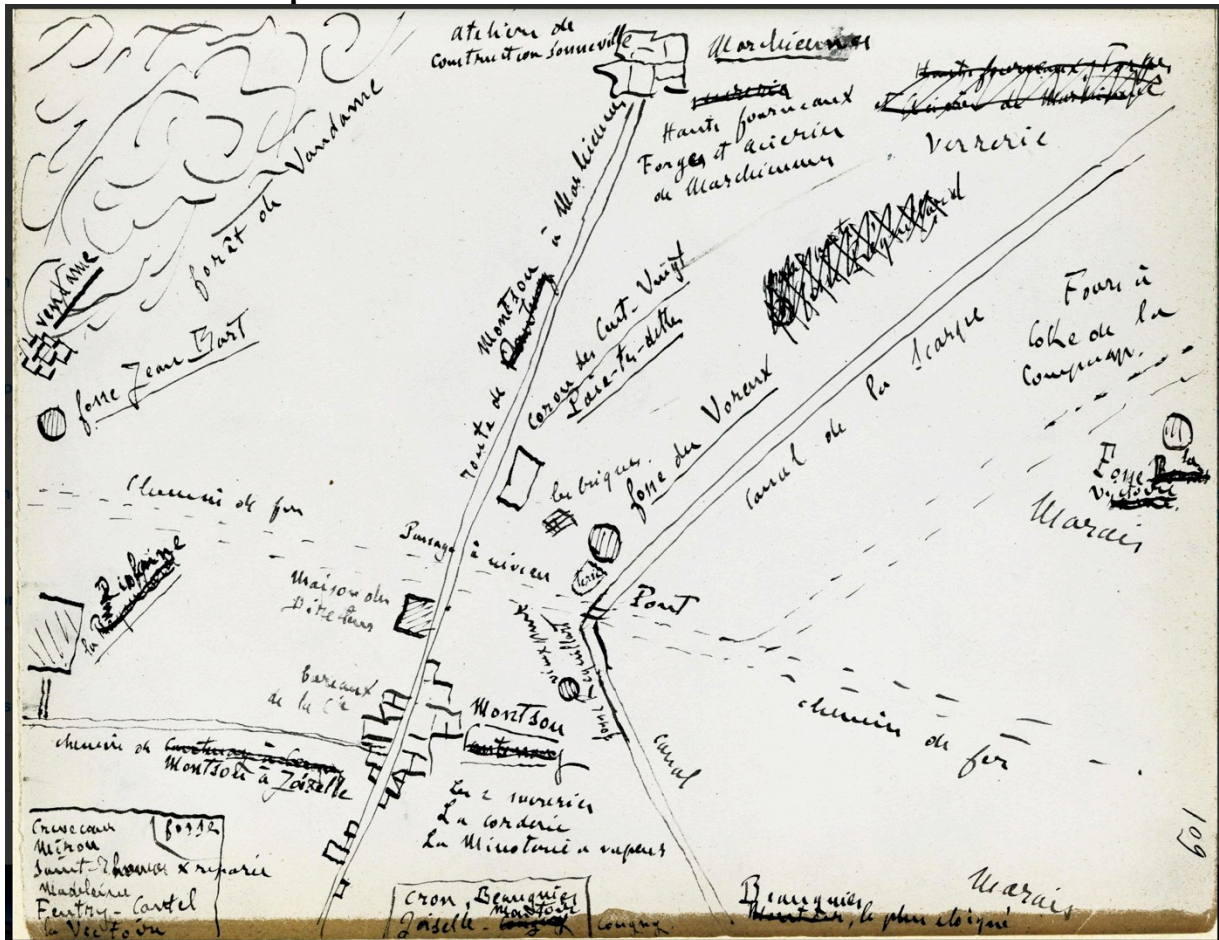 Atelier de
Construction Sonneville
Marchiennes
Hauts fourneaux
Forges et aciéries
de Marchiennes
Verrerie
forêt de Vandame
Vandame
fosse Jean Bart
route de Montsou à Marchiennes
Coron des Cent-Vingt
Paie-tes-dettes
les briques.
fosse du Voreux
canal de la Scarpe
Fours à
Coke de la
Compagn.
Fosse la
Victoire
Marais
Chemin de fer
Passage à niveau
terri
Pont
Maison du
Directeur
la Piolaine
vieux puits
fosse Réquillart
bureaux
de la Cie
Montsou
chemin de fer
canal
chemin de
Montsou à Joizelle
Les 2 sucreries
La corderie
La Minoterie à vapeur
fosses
Crèvecoeur
Mirou
Saint-Thomas x réparée
Madeleine
Feutry-Cantel
la Victoire
Cron, Beaugnies
Joiselle - Montsou
Cougny
Beaugnies
, le plus éloigné
Marais
109